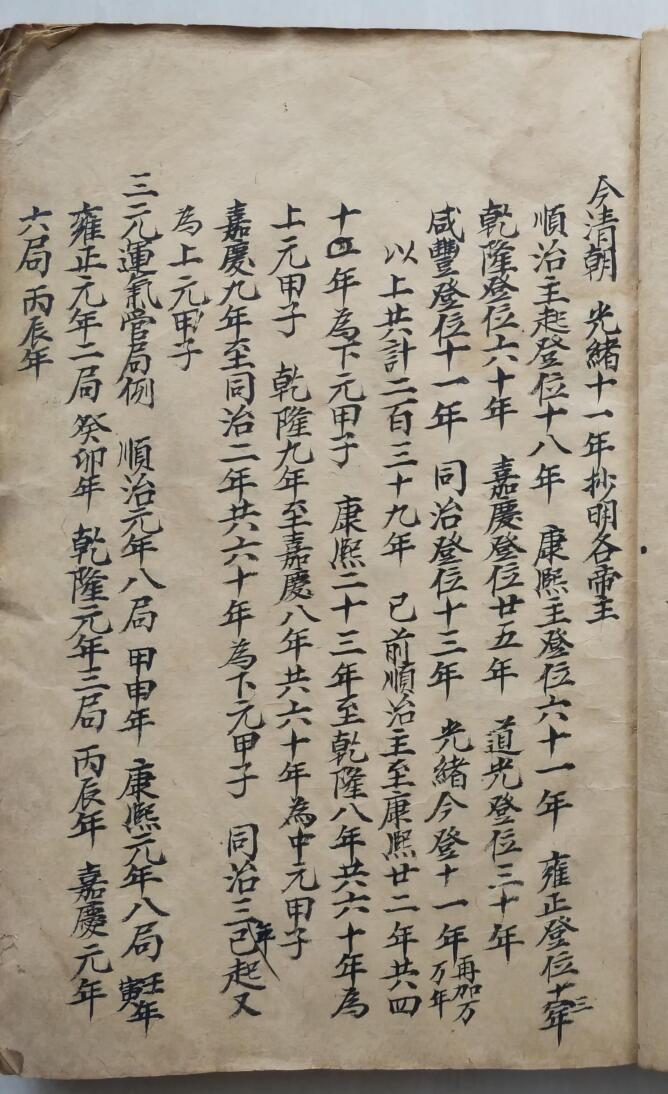 今清朝 光緒十一年抄明各帝主
順治主起登位十八年 康熙主登位六十一年 雍正登位十三年
乾隆登位六十年 嘉慶登位廿五年 道光登位三十年
咸豐登位十一年 同治登位十三年 光緒今登十一年 再加万万年
以上共計二百三十九年 已前順治主至康熙廿二年共四
十年為下元甲子 康熙二十三年至乾隆八年共六十年為
上元甲子 乾隆九年至嘉慶八年共六十年為中元甲子
嘉慶九年至同治二年共六十年為下元甲子 同治三年已起又
為上元甲子
三元運氣管局例 順治元年八局 甲申年 康熙元年八局 壬寅年
雍正元年二局 癸卯年 乾隆元年三局 丙辰年 嘉慶元年
六局 丙辰年